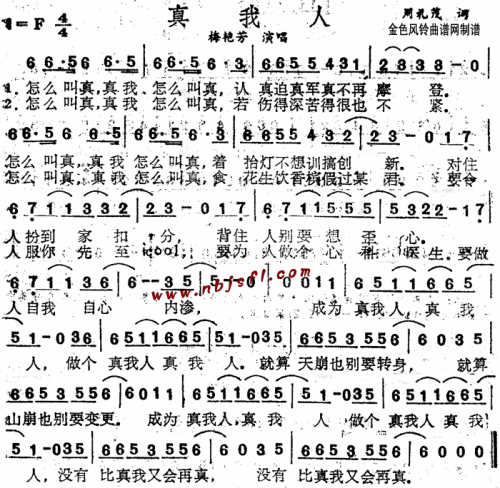 真 我 人
1=F 4/4
周礼茂 词
金色风铃曲谱网制谱
梅艳芳 演唱
6 6·5 6 6·5 6 6·5 6 6·5 | 6 6 5 4 3 1 | 2 3 3 3 - 0
1. 怎么叫真,真我怎么叫真,认真迫真军真不再摩登。
2. 怎么叫真,真我怎么叫真,若伤得深苦得很也不紧。
怎么叫真,真我怎么叫真,着抬灯不想训搞创新。对住
怎么叫真,真我怎么叫真,食花生饮香槟假过某君。要食
6 7 1 1 3 3 2 | 2 3 - 0 1 7 | 6 7 1 1 5 5 5 | 5 3 2 2 - 1 7
人扮到家扣分,背住人别要想歪心。
人服你先至cool,要为人做个心科医生。要做
6 7 1 1 3 6 | 6 - - 3 5 | 5 - - 0 | 0 0 1 1 | 6 5 1 1 6 6 5
www.nbfsfl.com
人自我自心内渗,成为真我人,真我
5 1 - 0 3 6 | 6 5 1 1 6 6 5 | 5 1 - 0 3 5 | 6 6 5 3 5 5 6 | 6 0 3 5
人,做个真我人真我人。就算天崩也别要转身,就算
6 6 5 3 5 5 6 | 6 - 0 1 1 | 6 5 1 1 6 6 5 | 5 1 - 0 3 6 | 6 5 1 1 6 6 5
山崩也别要变更。成为真我人,真我人做个真我人真我
5 1 - 0 3 5 | 6 6 5 3 5 5 6 | 6 0 3 5 | 6 6 5 3 5 5 6 | 6 0 0 0
人,没有比真我又会再真,没有比真我又会再真。